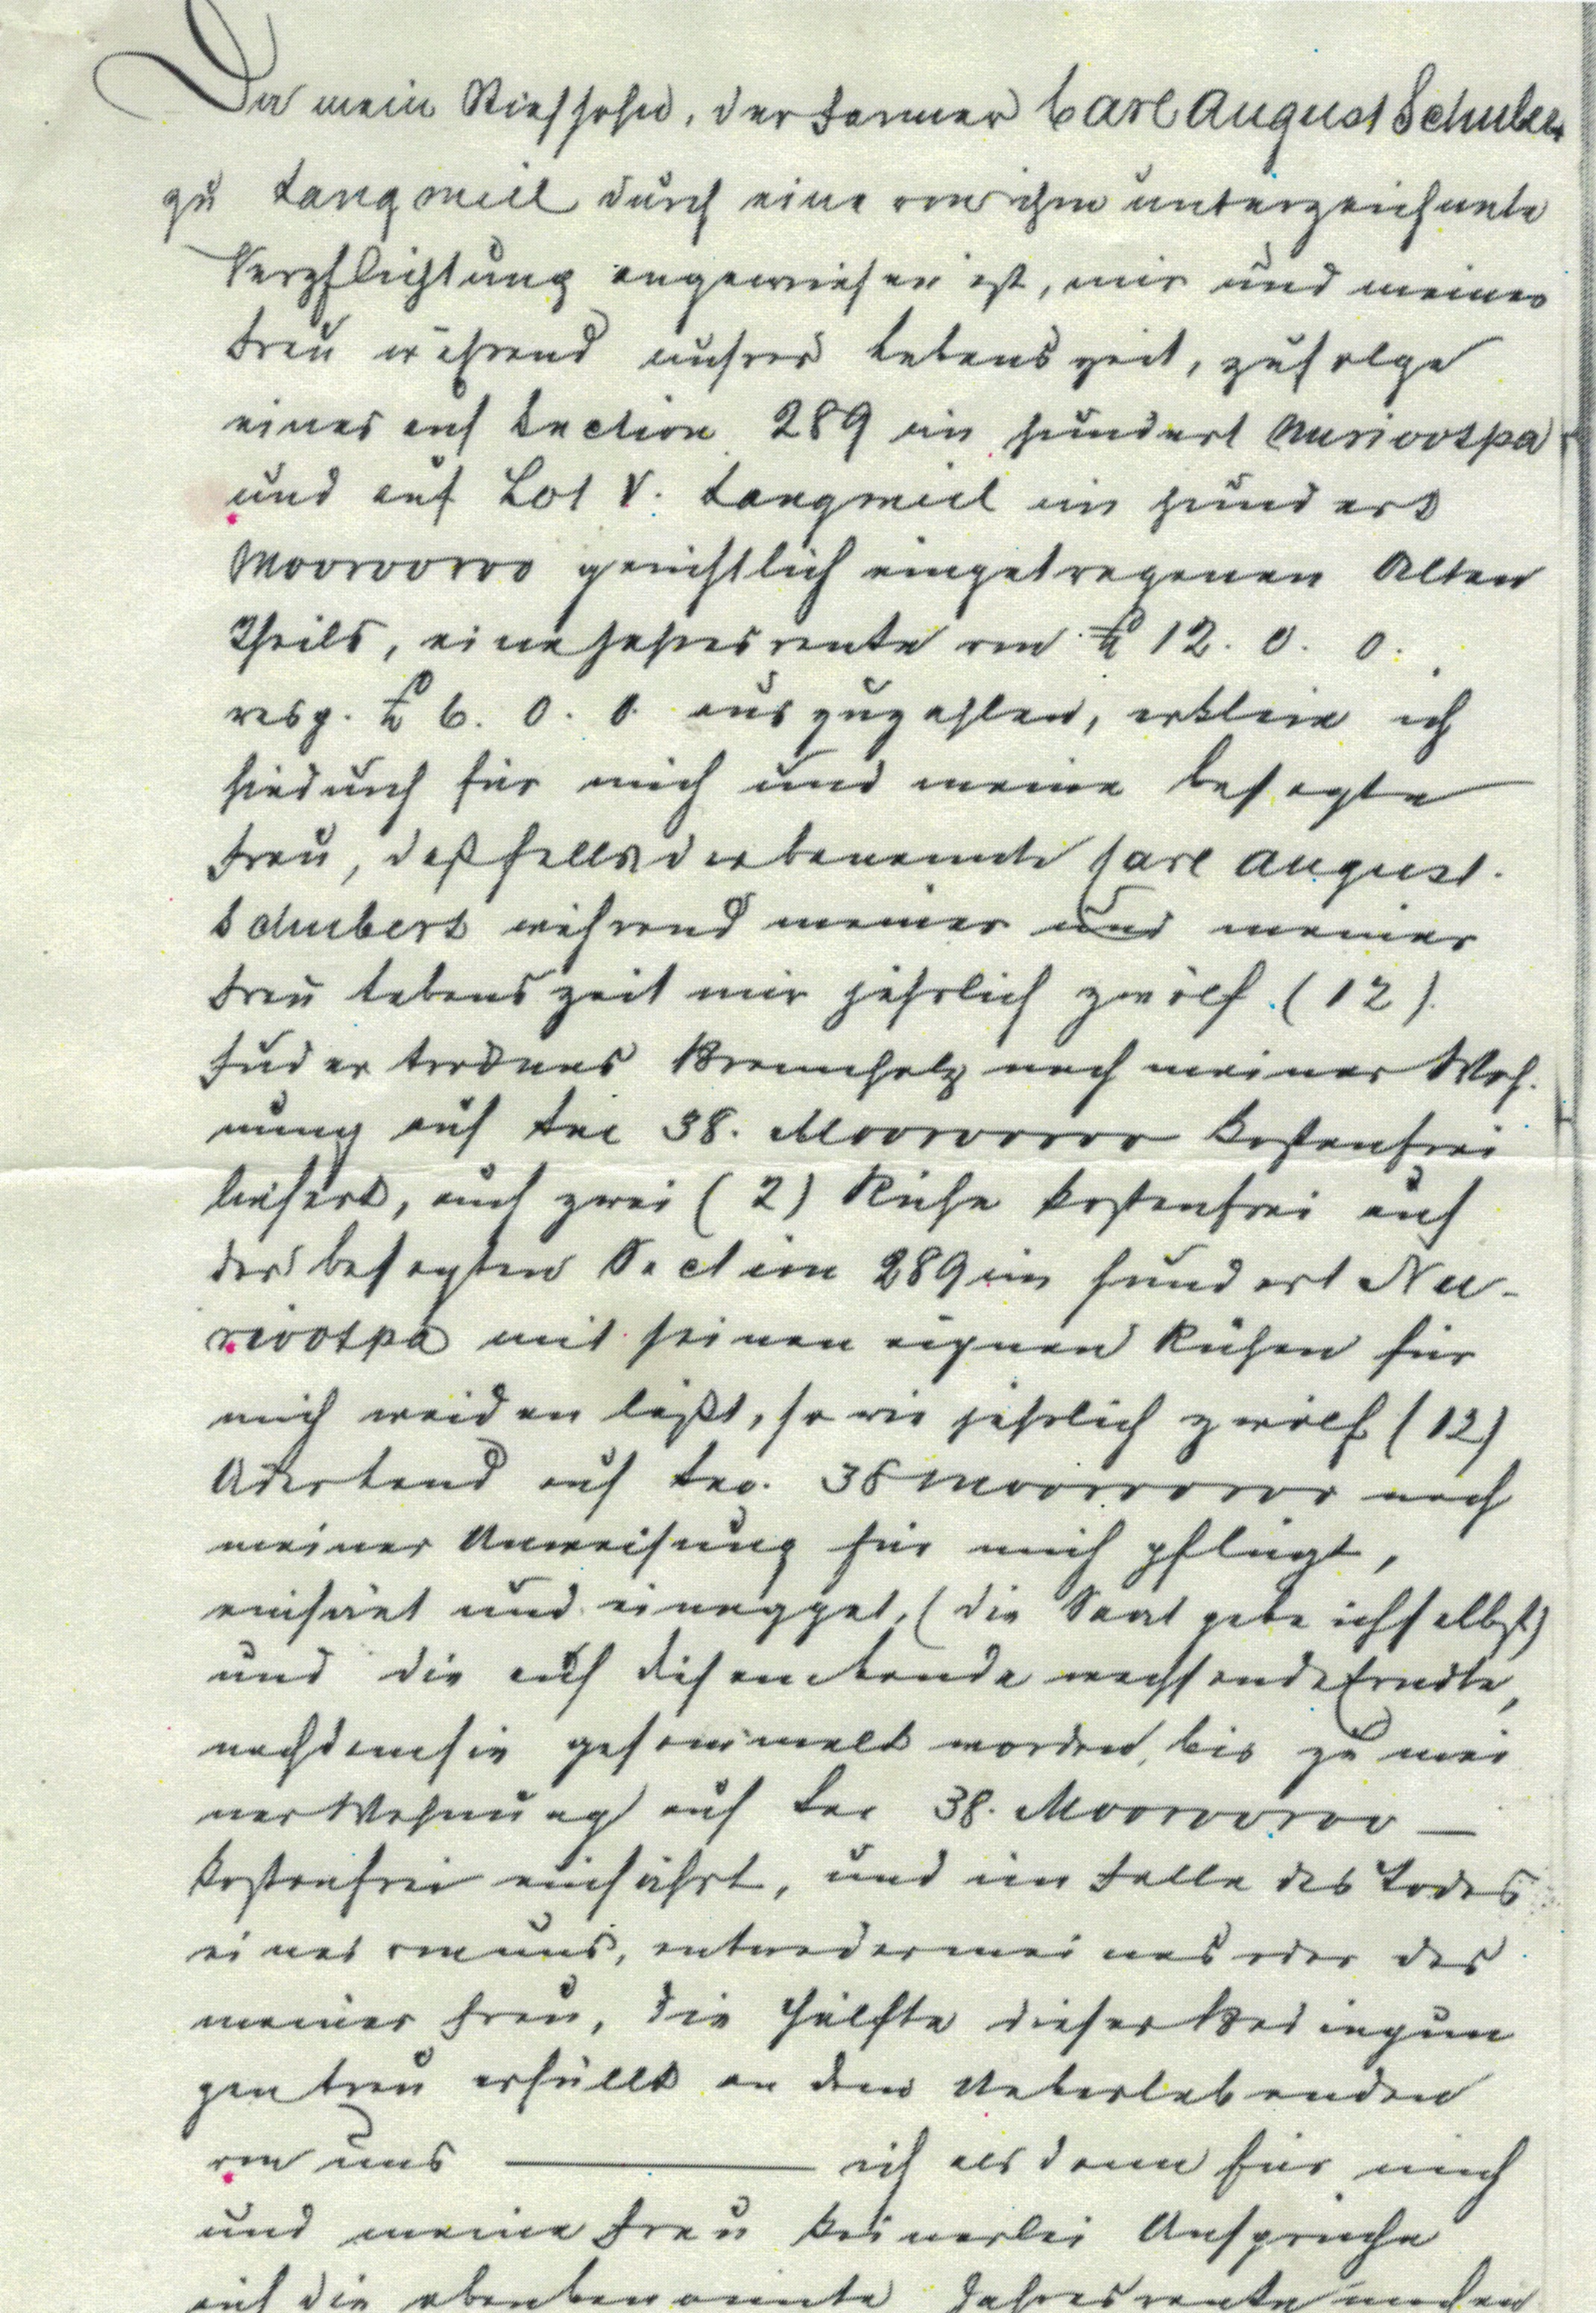 Da mein Stiefsohn, der Farmer Carl August Schuber
zu Langmeil durch eine von ihm unterzeichnete
Verpflichtung angewiesen ist, mir und meiner
Frau während unsrer Lebenszeit, zufolge
eines auf Section 289 im Hundert Nuriootpa
und auf Lot V. Langmeil im Hundert
Moorooroo gerichtlich eingetragenen Alten
Theils, eine Jahresrente von £ 12. 0. 0.
resp. £ 6. 0. 0. auszuzahlen, erkläre ich
hiedurch für mich und meine besagte
Frau, daß falls der benannte Carl August
Schubert während meiner und meiner
Frau Lebenszeit mir jährlich zwölf (12)
Fuder trocknes Brennholz nach meiner Woh-
nung auf Sec 38. Moorooroo kostenfrei
liefert, auch zwei (2) Kühe kostenfrei auf
der besagten Section 289 im Hundert Nu-
riootpa mit seinen eignen Kühen für
mich weiden läßt, so wie jährlich zwölf (12)
Acker Land auf Sec. 38 Moorooroo nach
meiner Anweisung für mich pflügt,
einsäet und einegget, (die Saat gebe ich selbst)
und die auf diesem Lande wachsende Erndte,
nachdem sie gesammelt worden, bis zu mei
ner Wohnung auf Sec 38. Moorooroo —
kostenfrei einfährt, und im Falle des Todes
eines von uns, entweder meines oder des
meiner Frau, die Hälfte dieser Bedingun
gen treu erfüllt an dem Ueberlebenden
von uns — ich alsdann für mich
und meine Frau keinerlei Ansprüche
auf die obenbenannte Jahresrente machen